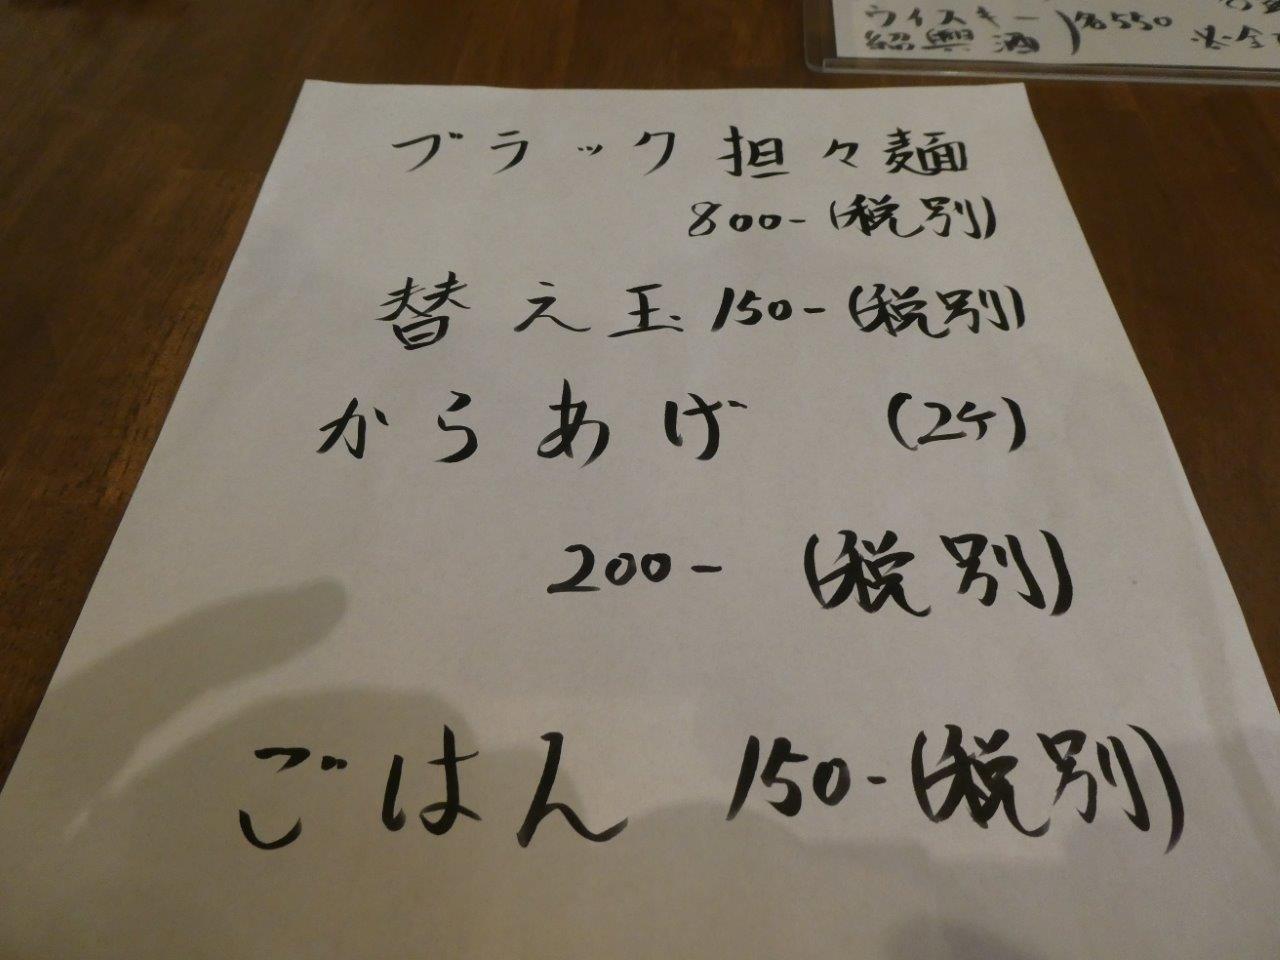 ウイスキー
紹興酒 )各550
ブラック担々麺
800-(税別)
替え玉 150-(税別)
からあげ (2ケ)
200- (税別)
ごはん 150-(税別)